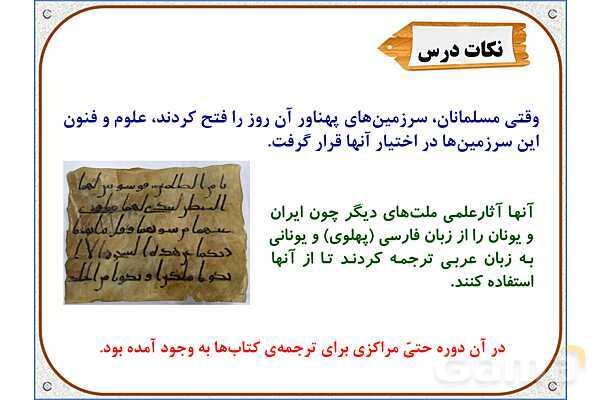 نکات درس
وقتی مسلمانان، سرزمین‌های پهناور آن روز را فتح کردند، علوم و فنون
این سرزمین‌ها در اختیار آنها قرار گرفت.
آنها آثارعلمی ملت‌های دیگر چون ایران
و یونان را از زبان فارسی (پهلوی) و یونانی
به زبان عربی ترجمه کردند تا از آنها
استفاده کنند.
در آن دوره حتیّ مراکزی برای ترجمه‌ی کتاب‌ها به وجود آمده بود.
Gama